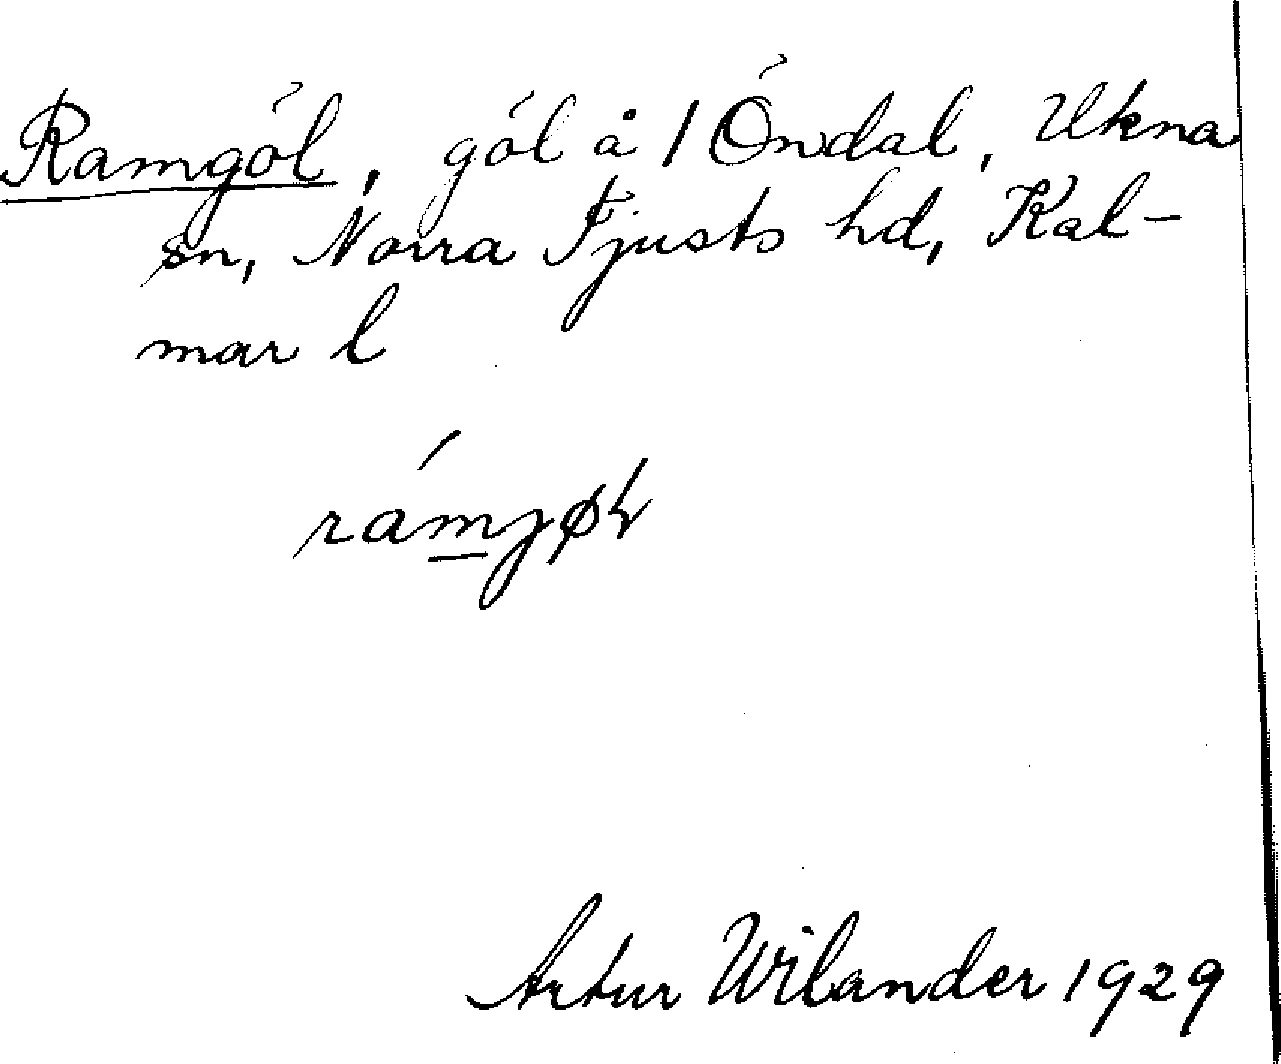 Ramgöl, göl å 1 Öndal, Ukna
sn, Norra Tjusts hd, Kal-
mar l
Artur Wilander 1929